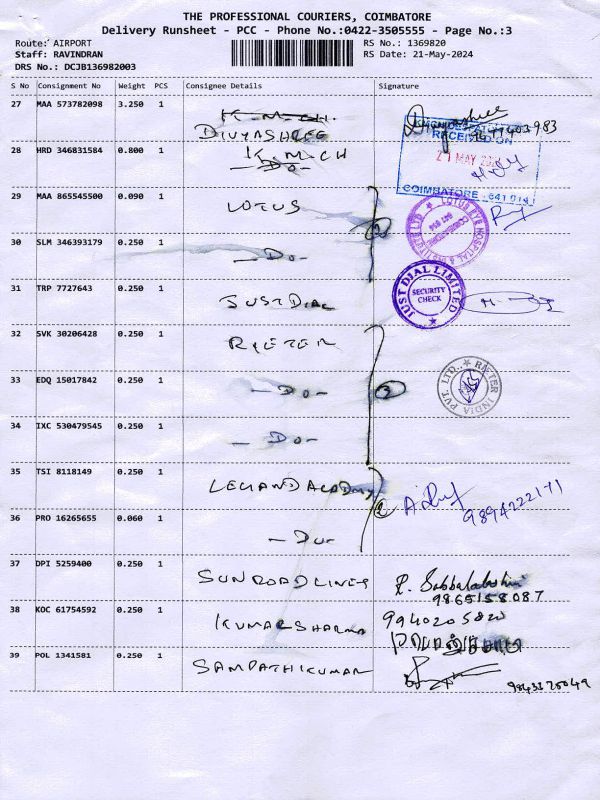 THE PROFESSIONAL COURIERS, COIMBATORE
Delivery Runsheet - PCC - Phone No.:0422-3505555 - Page No.:3
Route: AIRPORT
Staff: RAVINDRAN
DRS No.: DCJB136982003
RS No.: 1369820
RS Date: 21-May-2024
S No Consignment No Weight PCS Consignee Details Signature
27 MAA 573782098 3.250 1 K.M.CH. DIVYASHREE
RECEIVED ON
28 HRD 346831584 0.800 1 K.M.CH -Do-
21 MAY
COIMBATORE - 641 014
29 MAA 865545500 0.090 1 LOTUS
LOTUS EYE HOSPITAL & INSTITUTE LTD
COIMBATORE
641 014
30 SLM 346393179 0.250 1 -Do- 2
31 TRP 7727643 0.250 1 JUST DIAL
JUST DIAL LIMITED
SECURITY CHECK
32 SVK 30206428 0.250 1 RIETER
33 EDQ 15017842 0.250 1 -Do- 3
RIETER INDIA PVT. LTD.
34 IXC 530479545 0.250 1 -Do-
35 TSI 8118149 0.250 1 LEHAND ACADMY
9894222171
36 PRO 16265655 0.060 1 -Do-
37 DPI 5259400 0.250 1 SUNROADLINES
9865158087
38 KOC 61754592 0.250 1 KUMARSHARMA
9940205820
39 POL 1341581 0.250 1 SAMPATHKUMAR